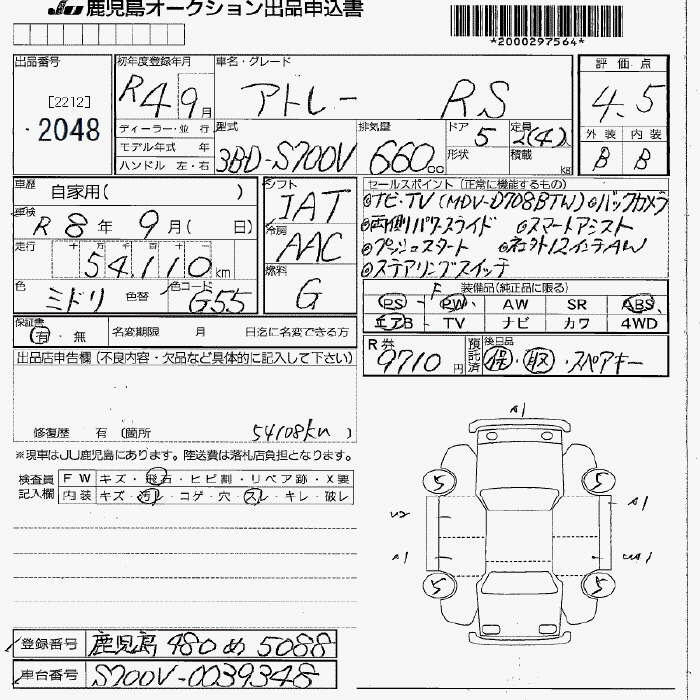 JU 鹿児島オークション出品申込書
*2000297564*
出品番号
[2212]
2048
初年度登録年月
R4 9月
車名・グレード
アトレー RS
評価点
4.5
外装 内装
B B
ディーラー・並行
モデル年式 年
ハンドル 左・右
型式
3BD-S700V
排気量
660cc
ドア 5
形状
定員 2(4)人
積載 kg
車歴
自家用( )
車検
R 8年 9月( 日)
走行
十 万 千 百 十 一
54,110km
色
ミドリ
色替
色コード
G55
シフト
IAT
冷房
AAC
燃料
G
セールスポイント(正常に機能するもの)
◎ナビ・TV(MDV-D708BTW)◎バックカメラ
◎両側パワースライド ◎スマートアシスト
◎プッシュスタート ◎社外12インチAW
◎ステアリングスイッチ
装備品(純正品に限る)
PS F PW AW SR ABS
エアB TV ナビ カワ 4WD
保証書
有・無
名変期限 月 日迄に名変できる方
R券
9710円
預託済
後日品
保・取・スペアキー
出品店申告欄(不良内容・欠品など具体的に記入して下さい)
修復歴 有 (箇所 54108km )
※現車はJU鹿児島にあります。陸送費は落札店負担となります。
検査員記入欄
FW キズ・飛石・ヒビ割・リペア跡・X要
内装 キズ・汚レ・コゲ・穴・スレ・キレ・破レ
A1
5 5
U2 A1
A1 UA1
5 5
登録番号 鹿児島 480 め 5088
車台番号 S700V-0039348